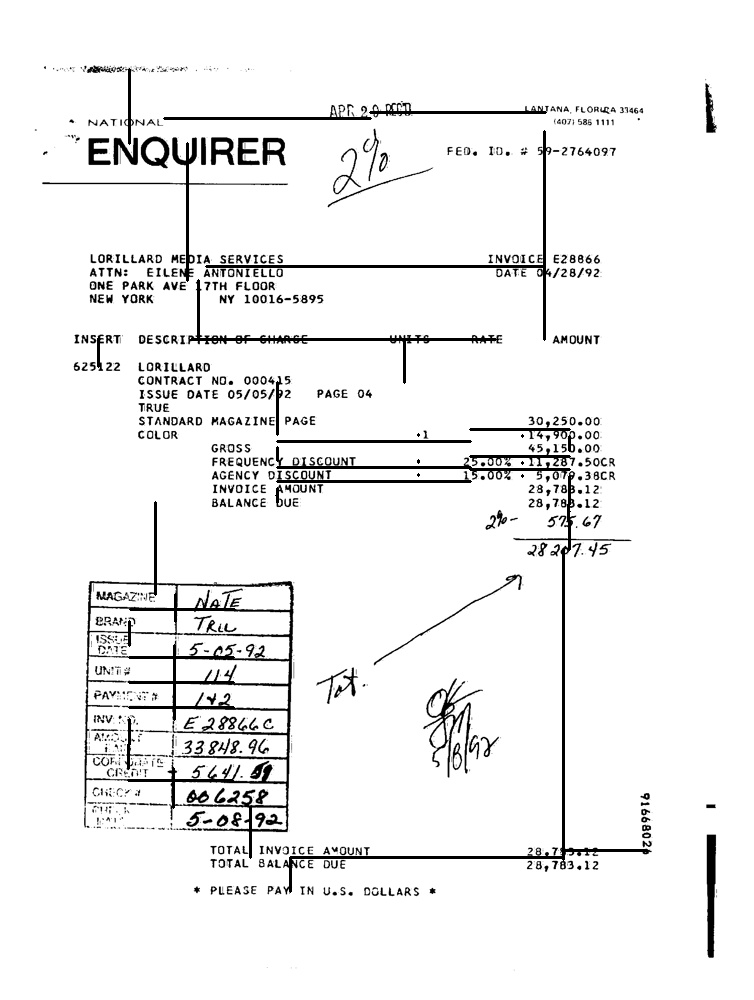 APR 20 REC'D
LANTANA, FLORIDA 33464
(407) 586 1111
NATIONAL
ENQUIRER
2%
FED. ID. # 59-2764097
LORILLARD MEDIA SERVICES INVOICE E28866
ATTN: EILENE ANTONIELLO DATE 04/28/92
ONE PARK AVE 17TH FLOOR
NEW YORK NY 10016-5895
INSERT DESCRIPTION OF CHARGE UNITS RATE AMOUNT
625122 LORILLARD
CONTRACT NO. 000415
ISSUE DATE 05/05/92 PAGE 04
TRUE
STANDARD MAGAZINE PAGE 30,250.00
COLOR .1 14,900.00
GROSS 45,150.00
FREQUENCY DISCOUNT 25.00% 11,287.50CR
AGENCY DISCOUNT 15.00% 5,079.38CR
INVOICE AMOUNT 28,783.12
BALANCE DUE 28,783.12
2%- 575.67
28207.45
MAGAZINE NATE
BRAND TRU
ISSUE DATE 5-05-92
UNIT# 114
PAYMENT# 1+2
INV. NO. E28866C
AMOUNT 33848.96
CORPORATE CREDIT + 5641.
CHECK# 006258
CHECK DATE 5-08-92
Tot.
OK
5/8/92
91668026
TOTAL INVOICE AMOUNT 28,783.12
TOTAL BALANCE DUE 28,783.12
* PLEASE PAY IN U.S. DOLLARS *